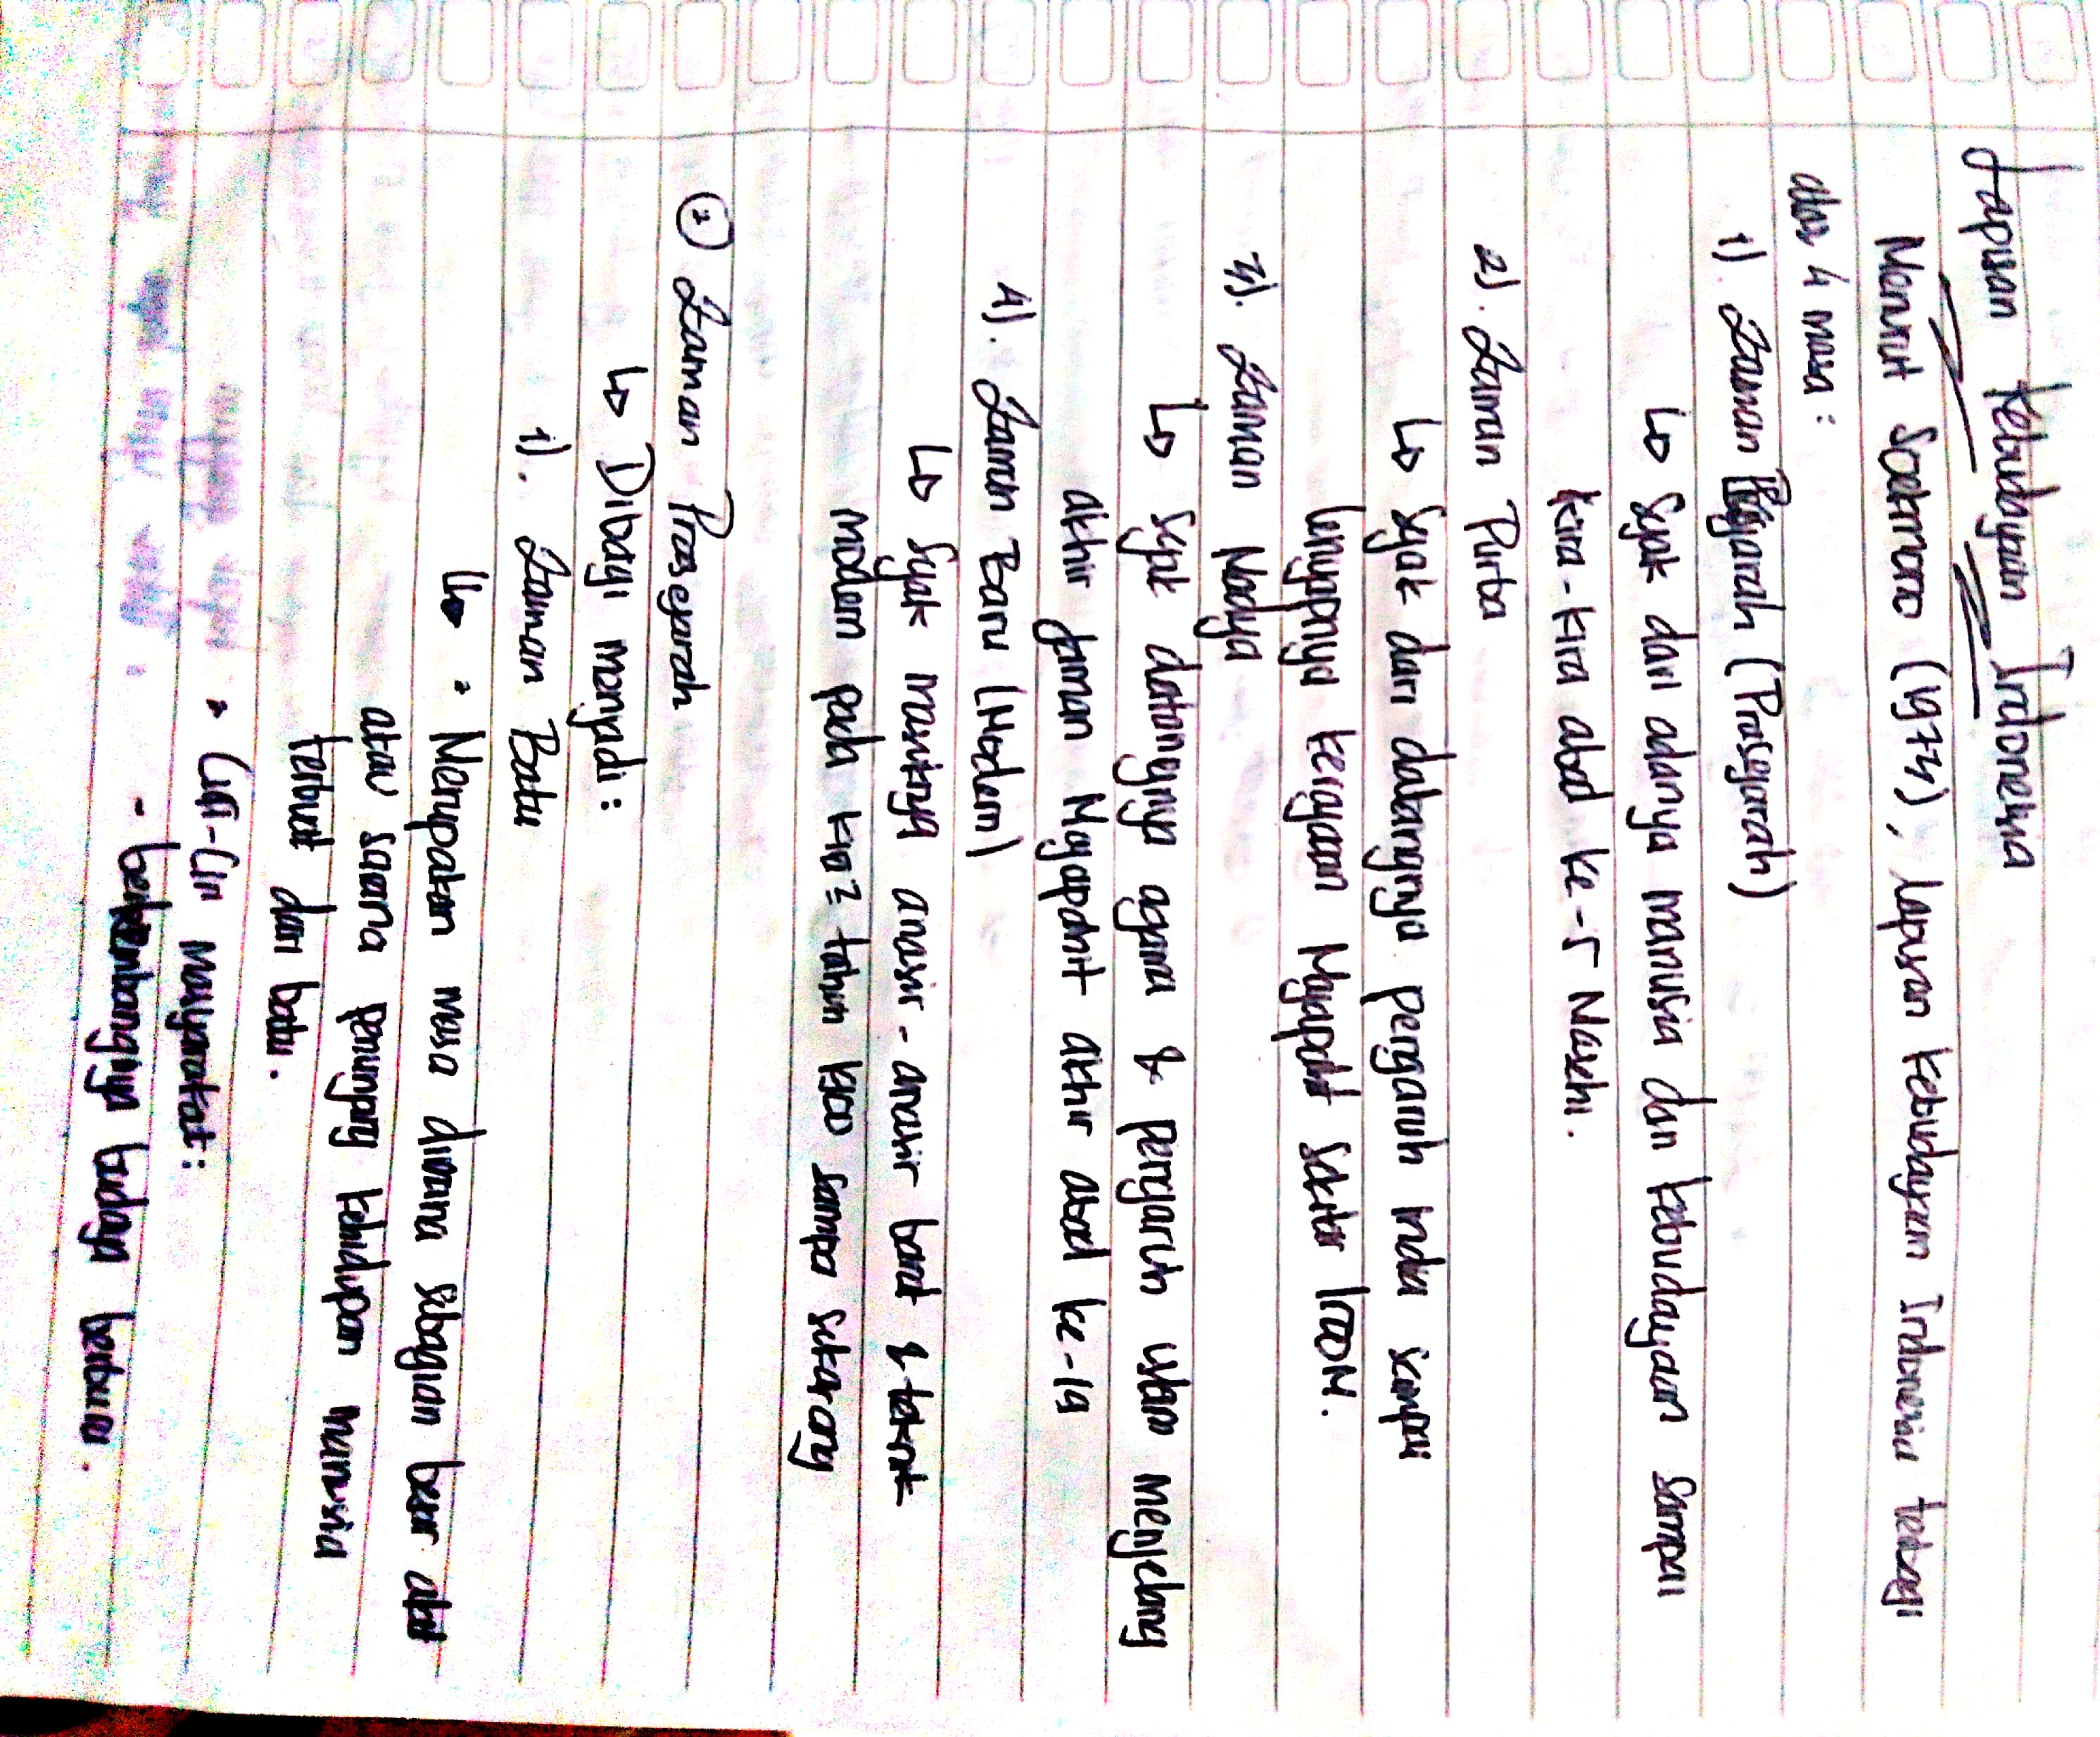 Lapisan Kebudayaan Indonesia
Menurut Soekmono (1973), lapisan kebudayaan Indonesia terbagi
atas 4 masa:
1). Zaman (Prasejarah)
↳ Sejak dari adanya manusia dan kebudayaan sampai
kira-kira abad ke-5 Masehi.
2). Zaman Purba
↳ Sejak dari datangnya pengaruh India sampai
lenyapnya kerajaan Majapahit sekitar 1500M.
3). Zaman Madya
↳ Sejak datangnya agama & pengaruh islam menjelang
akhir jaman Majapahit akhir abad ke-19
4). Zaman Baru (Modern)
↳ Sejak masuknya anasir-anasir barat & teknik
modern pada kira² tahun 1900 sampai sekarang
② Zaman Prasejarah
↳ Dibagi menjadi:
1). Zaman Batu
↳ • Merupakan masa dimana sebagian besar alat
atau sarana penunjang kehidupan manusia
terbuat dari batu.
• Ciri-Ciri masyarakat:
- berkembangnya budaya berburu.